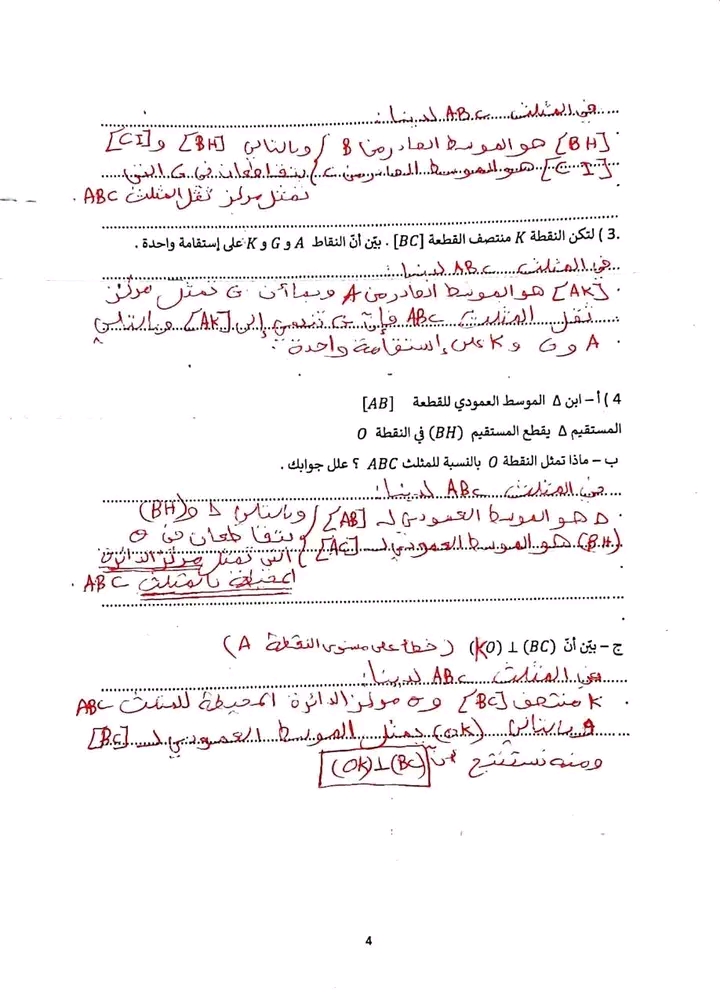 في المثلث ABC لدينا:
[BH] هو الموسط الصادر من B / وبالتالي [BH] و [CI]
[CI] هو الموسط الصادر من C / يتقاطعان في G التي
تمثل مركز ثقل المثلث ABC .
3. ) لتكن النقطة K منتصف القطعة [BC] . بيّن أنّ النقاط A و G و K على إستقامة واحدة .
في المثلث ABC لدينا:
[AK] هو الموسط الصادر من A وبما أن G تمثل مركز
ثقل المثلث ABC فإن G تنتمي إلى [AK] وبالتالي
A و G و K على إستقامة واحدة .
4 ) أ – ابن Δ الموسط العمودي للقطعة [AB]
المستقيم Δ يقطع المستقيم (BH) في النقطة O
ب – ماذا تمثل النقطة O بالنسبة للمثلث ABC ؟ علل جوابك .
في المثلث ABC لدينا:
Δ هو الموسط العمودي لـ [AB] / وبالتالي Δ و (BH)
(BH) هو الموسط العمودي لـ [AC] / يتقاطعان في O
التي تمثل مركز الدائرة
المحيطة بالمثلث ABC .
ج – بيّن أنّ (KO) ⊥ (BC) (خطأ على مستوى النقطة A)
في المثلث ABC لدينا:
K منتصف [BC] و O مركز الدائرة المحيطة للمثلث ABC
وبالتالي (OK) يمثل الموسط العمودي لـ [BC]
ومنه نستنتج أن (OK)⊥(BC)
4